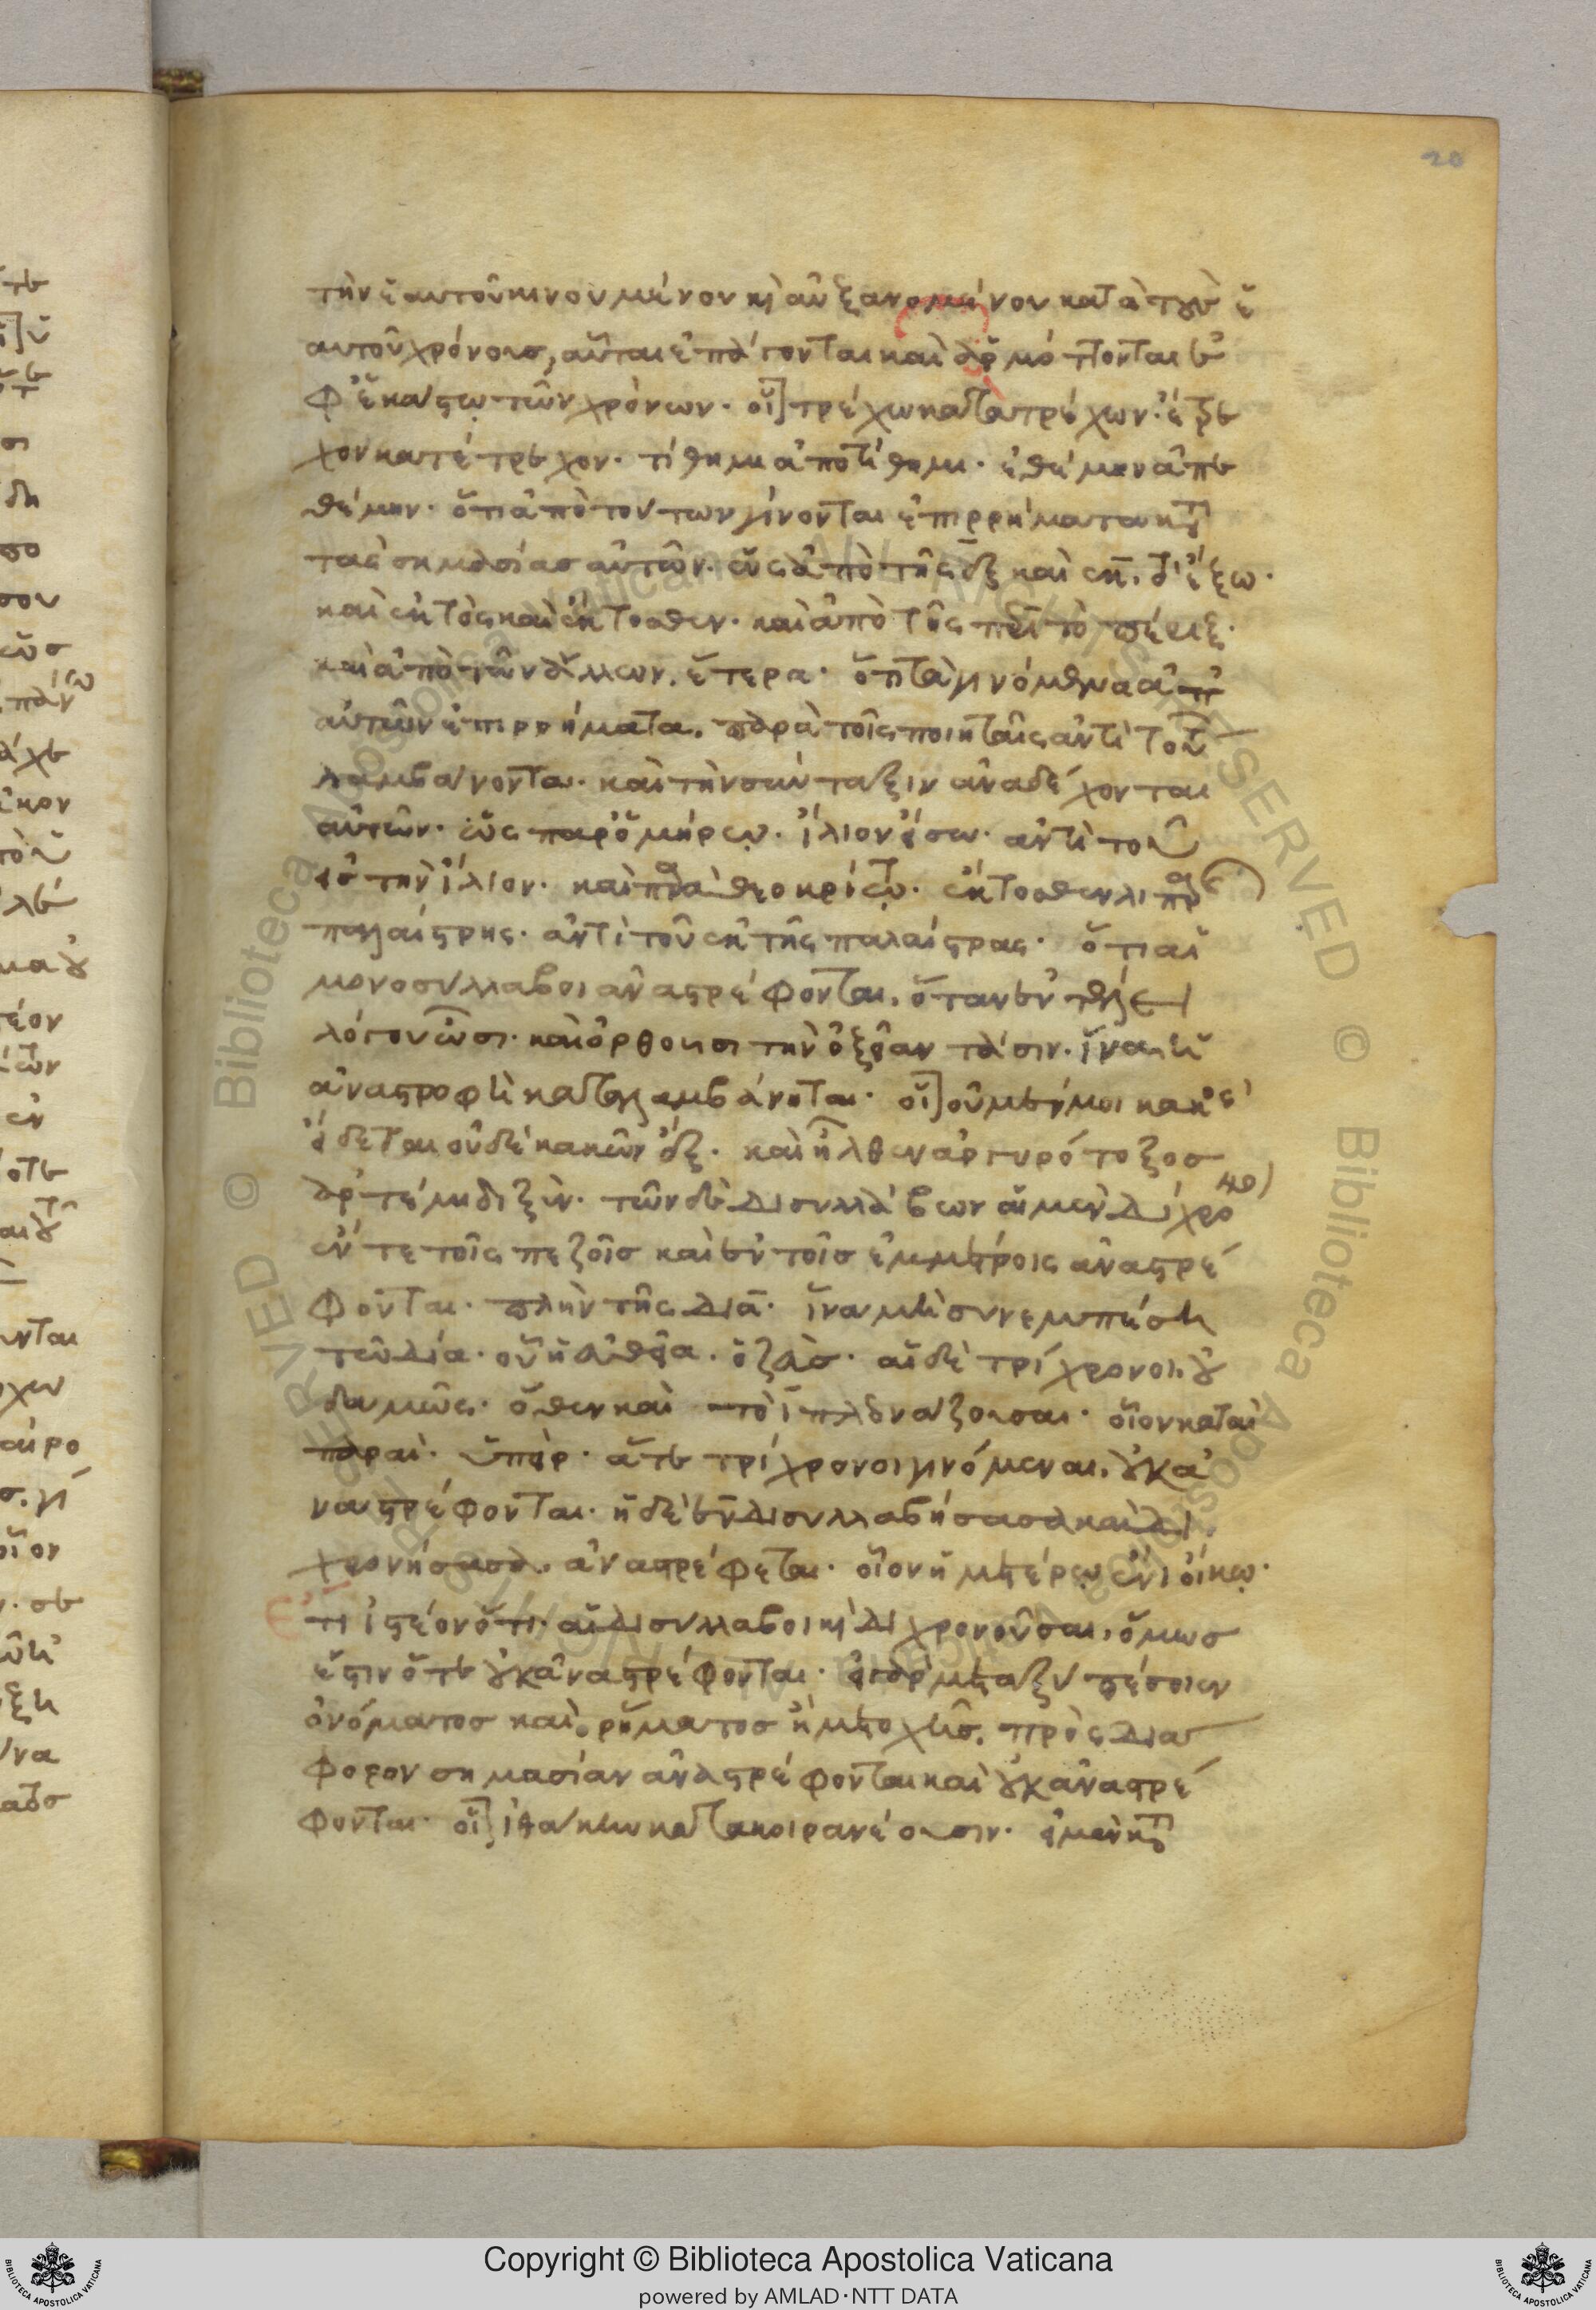 τὴν ἑαυτοῦ κινουμένου κ(αὶ) αὐξανομένου κατὰ τοὺς ἑ
αυτοῦ χρόνους, αὗται ἐπάγονται καὶ ἁρμόττονται ἐ
φ' ἑκάστω τῶν χρόνων· οἷ(ον) τρέχω κατατρέχων· ἔτρε
χον κατέτρεχον· τίθημι ἀποτίθημι· ἐθέμην ἀπε
θέμην· ὅτι ἀπὸ τούτων γίνονται ἐπιρρήματα κ(α)τ(ὰ)
τὰς σημασίας αὐτῶν· ὡς ἀπὸ τῆς ἐξ καὶ ἐκ. τὸ ἔξω·
καὶ ἐκτὸς καὶ ἔκτοσθεν· καὶ ἀπὸ τῆς περὶ τὸ πέριξ·
καὶ ἀπὸ τῶν ἄλλων, ἕτερα· ὅτι τὰ γινόμενα ἀπ'
αὐτῶν ἐπιρρήματα, παρὰ τοῖς ποιηταῖς ἀντὶ τού(των)
λαμβάνονται· καὶ τὴν σύνταξιν ἀναδέχονται
αὐτῶν· ὡς παρ' ὁμήρῳ. ἴλιον εἴσω· ἀντὶ τοῦ
εἰς τὴν ἴλιον· καὶ παρὰ θεοκρίτῳ· ἔκτοσθεν
παλαίστρης· ἀντὶ τοῦ ἐκ τῆς παλαίστρας· ὅτι αἱ
μονοσύλλαβοι ἀναστρέφονται, ὅταν ἐν τέλει
λόγου ὦσι· καὶ ὀρθοῦσι τὴν ὀξεῖαν τάσιν. ἵνα τῆ
ἀναστροφῆ καταλαμβάνηται· οἷ(ον) οὐ μὲν ἡμοι κακὸς
εἴδεται οὐδὲ κακῶν ἔξ· καὶ ἦλθεν ἀργυρότοξος
ἀρτέμιδι ξύν· τῶν δὲ δισυλλάβων αἱ μὲν δίχρο(νοι)
ἔν τε τοῖς πεζοῖς καὶ ἐν τοῖς ἐμμέτροις ἀναστρέ
φονται· πλὴν τῆς διὰ· ἵνα μὴ συνεμπέση
τῶ δία· οὗ ἡ εὐθεῖα. ὁ ζεὺς· αἱ δὲ τρίχρονοι, οὐ
δαμῶς· ὅθεν καὶ τὸ ι πλεονάζουσαι· οἷον καταὶ
παραὶ· ὑπὲρ· ἅτε τρίχρονοι γινόμεναι, οὐκ ἀ
ναστρέφονται· ἡ δὲ ἐν δισυλλαβήσασα καὶ δι
χρονήσασα, ἀναστρέφεται· οἷον ἡμετέρῳ ἐνὶ οἴκῳ·
ἔτι ἰστέον ὅτι αἱ δισύλλαβοι κ(αὶ) διχρονοῦσαι, ὅμως
ἔστιν ὅτε οὐκ ἀναστρέφονται· εἰ γὰρ μεταξὺ πέσοιεν
ὀνόματος καὶ ῥήματος ἢ μετοχῆς, πρὸς διά
φορον σημασίαν ἀναστρέφονται καὶ οὐκ ἀναστρέ
φονται· οἷ(ον) ἰθάκην κατακοιρανέουσιν· εἰ μὲν κ(α)τ(ὰ)
Copyright © Biblioteca Apostolica Vaticana
powered by AMLAD·NTT DATA